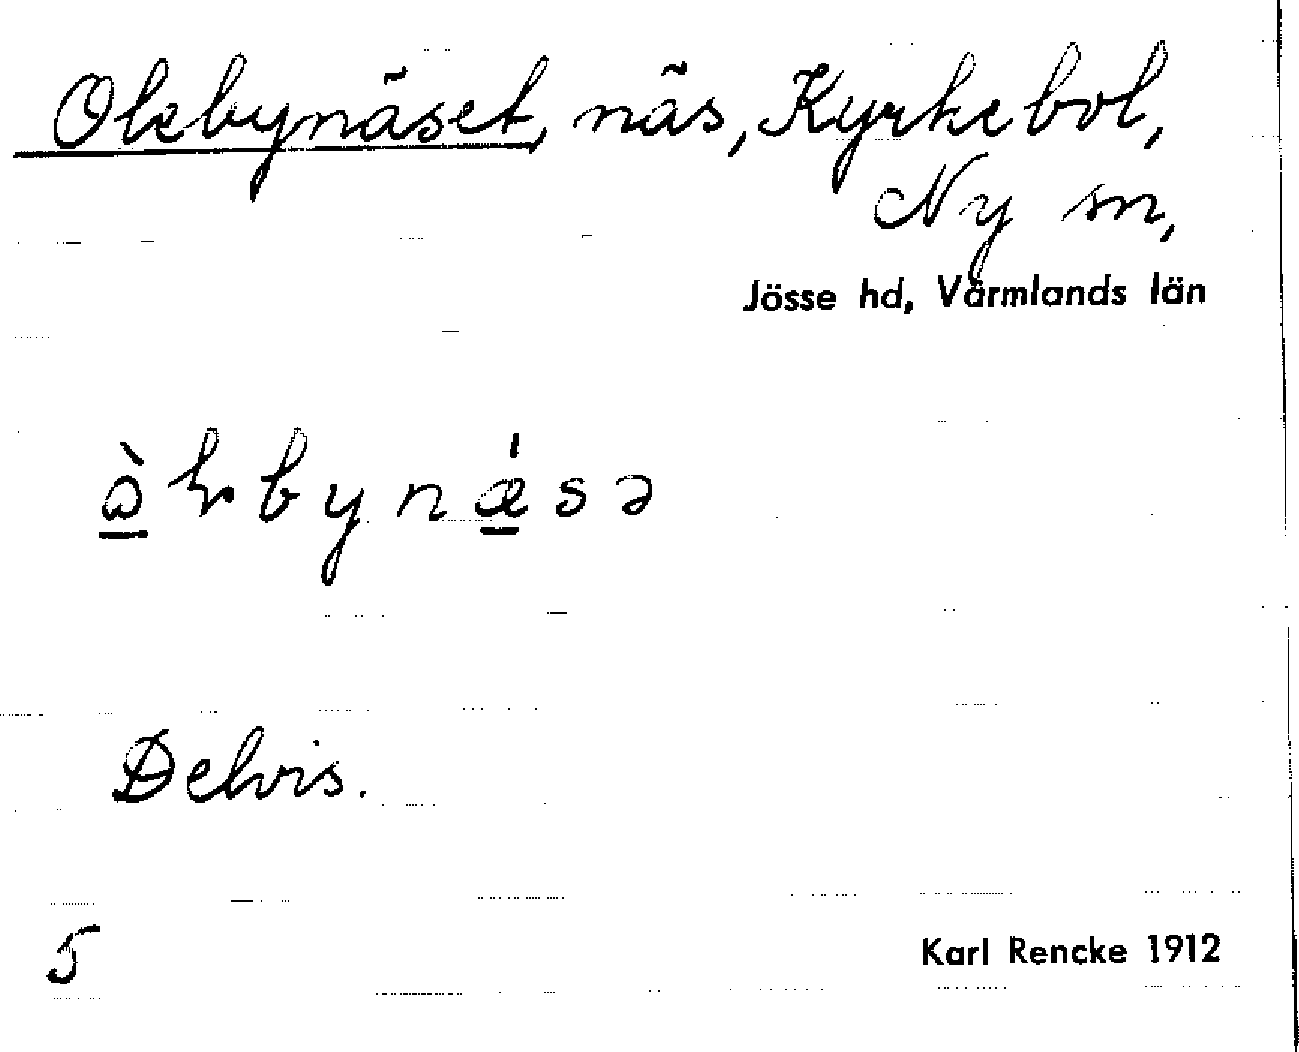 Olebynäset, näs, Kyrkebol,
Ny sn,
Jösse hd, Värmlands län
Delvis.
5
Karl Rencke 1912